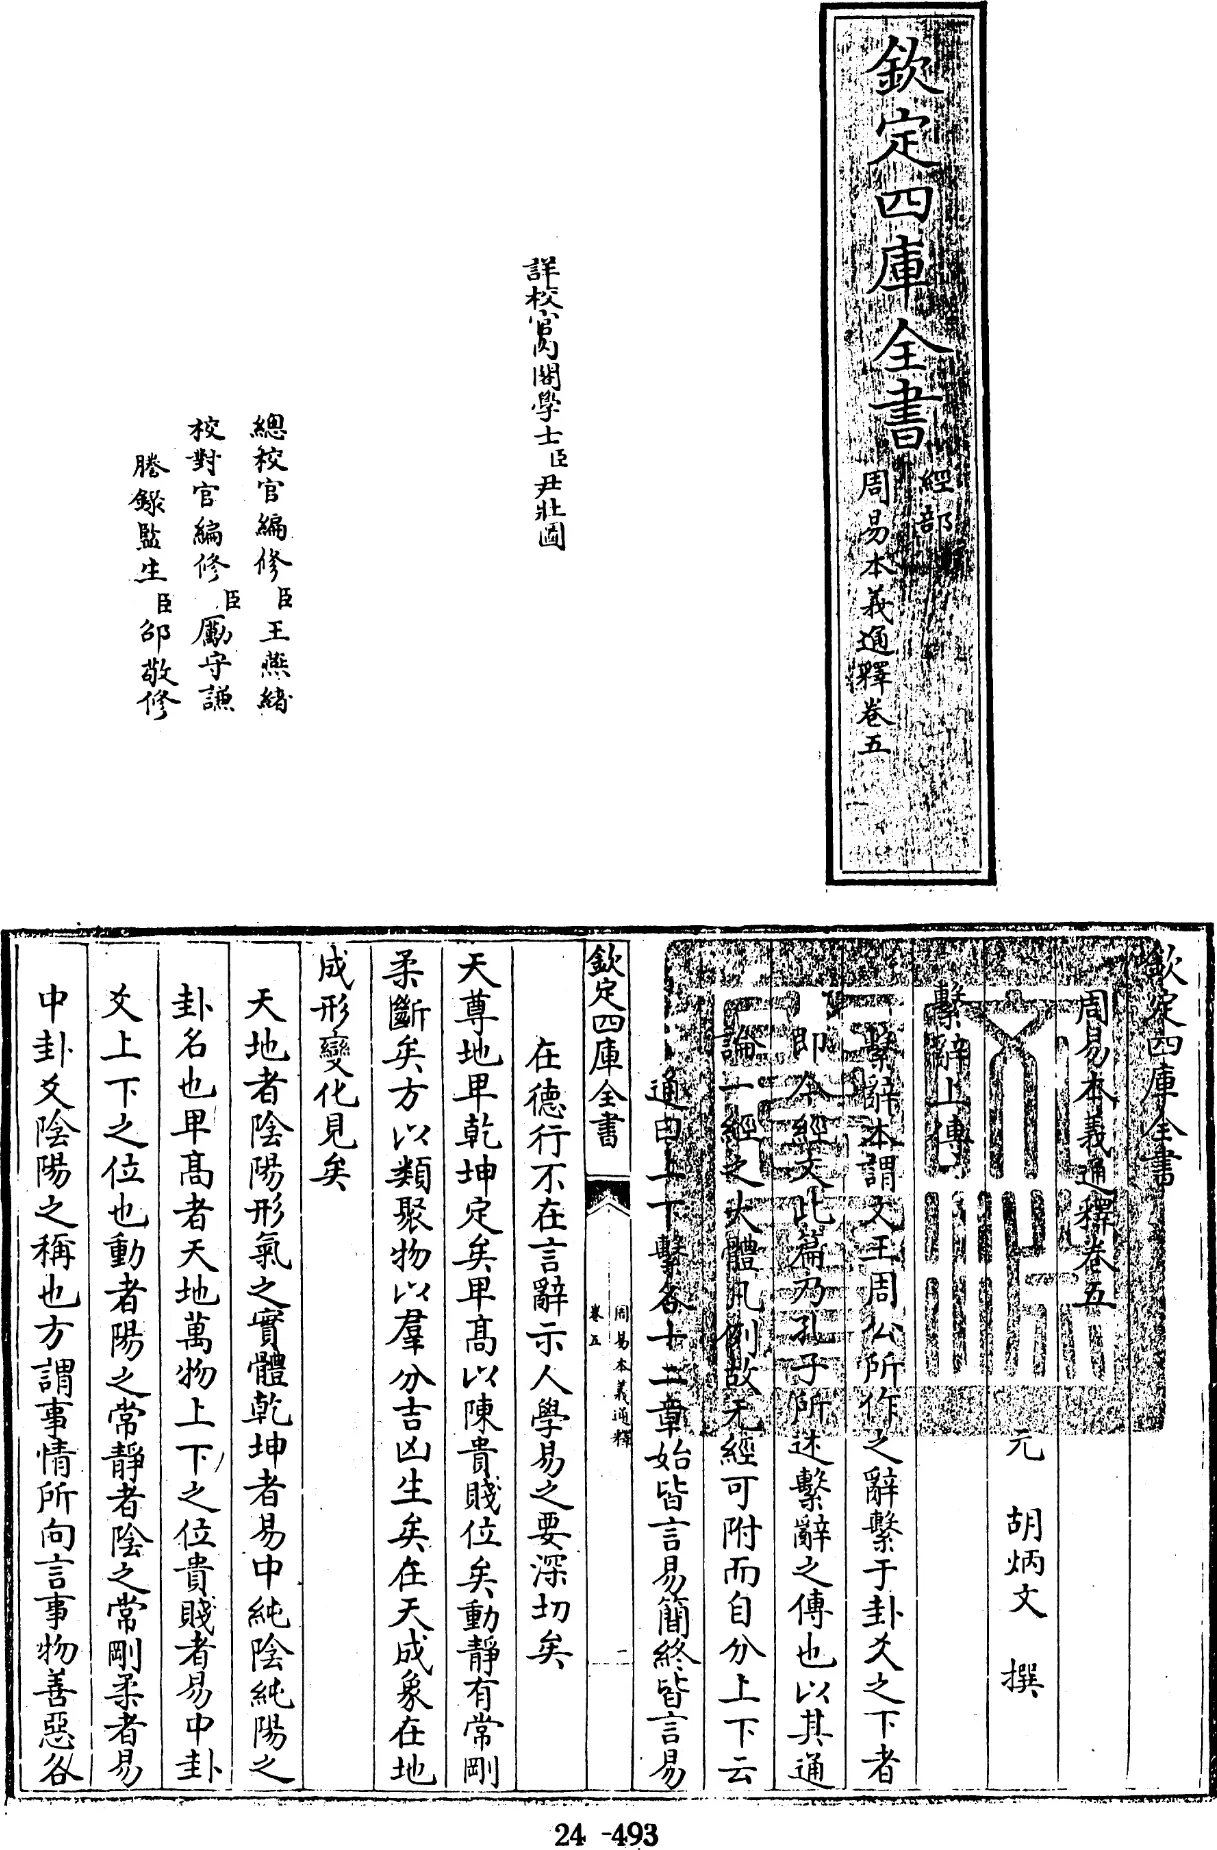 欽定四庫全書
經部
周易本義通釋卷五
詳校官內閣學士臣尹壯圖
總校官編修臣王燕緒
校對官編修臣勵守謙
謄錄監生臣邵敬修
欽定四庫全書
周易本義通釋卷五
元 胡炳文 撰
繫辭上傳
繫辭本謂文王周公所作之辭繫于卦爻之下者
即今經文此篇乃孔子所述繫辭之傳也以其通
論一經之大體凡例故无經可附而自分上下云
通曰上下繫各十二章始皆言易簡終皆言易
欽定四庫全書
周易本義通釋
卷五
二
在德行不在言辭示人學易之要深切矣
天尊地卑乾坤定矣卑高以陳貴賤位矣動靜有常剛
柔斷矣方以類聚物以羣分吉凶生矣在天成象在地
成形變化見矣
天地者陰陽形氣之實體乾坤者易中純陰純陽之
卦名也卑高者天地萬物上下之位貴賤者易中卦
爻上下之位也動者陽之常靜者陰之常剛柔者易
中卦爻陰陽之稱也方謂事情所向言事物善惡各
24-493